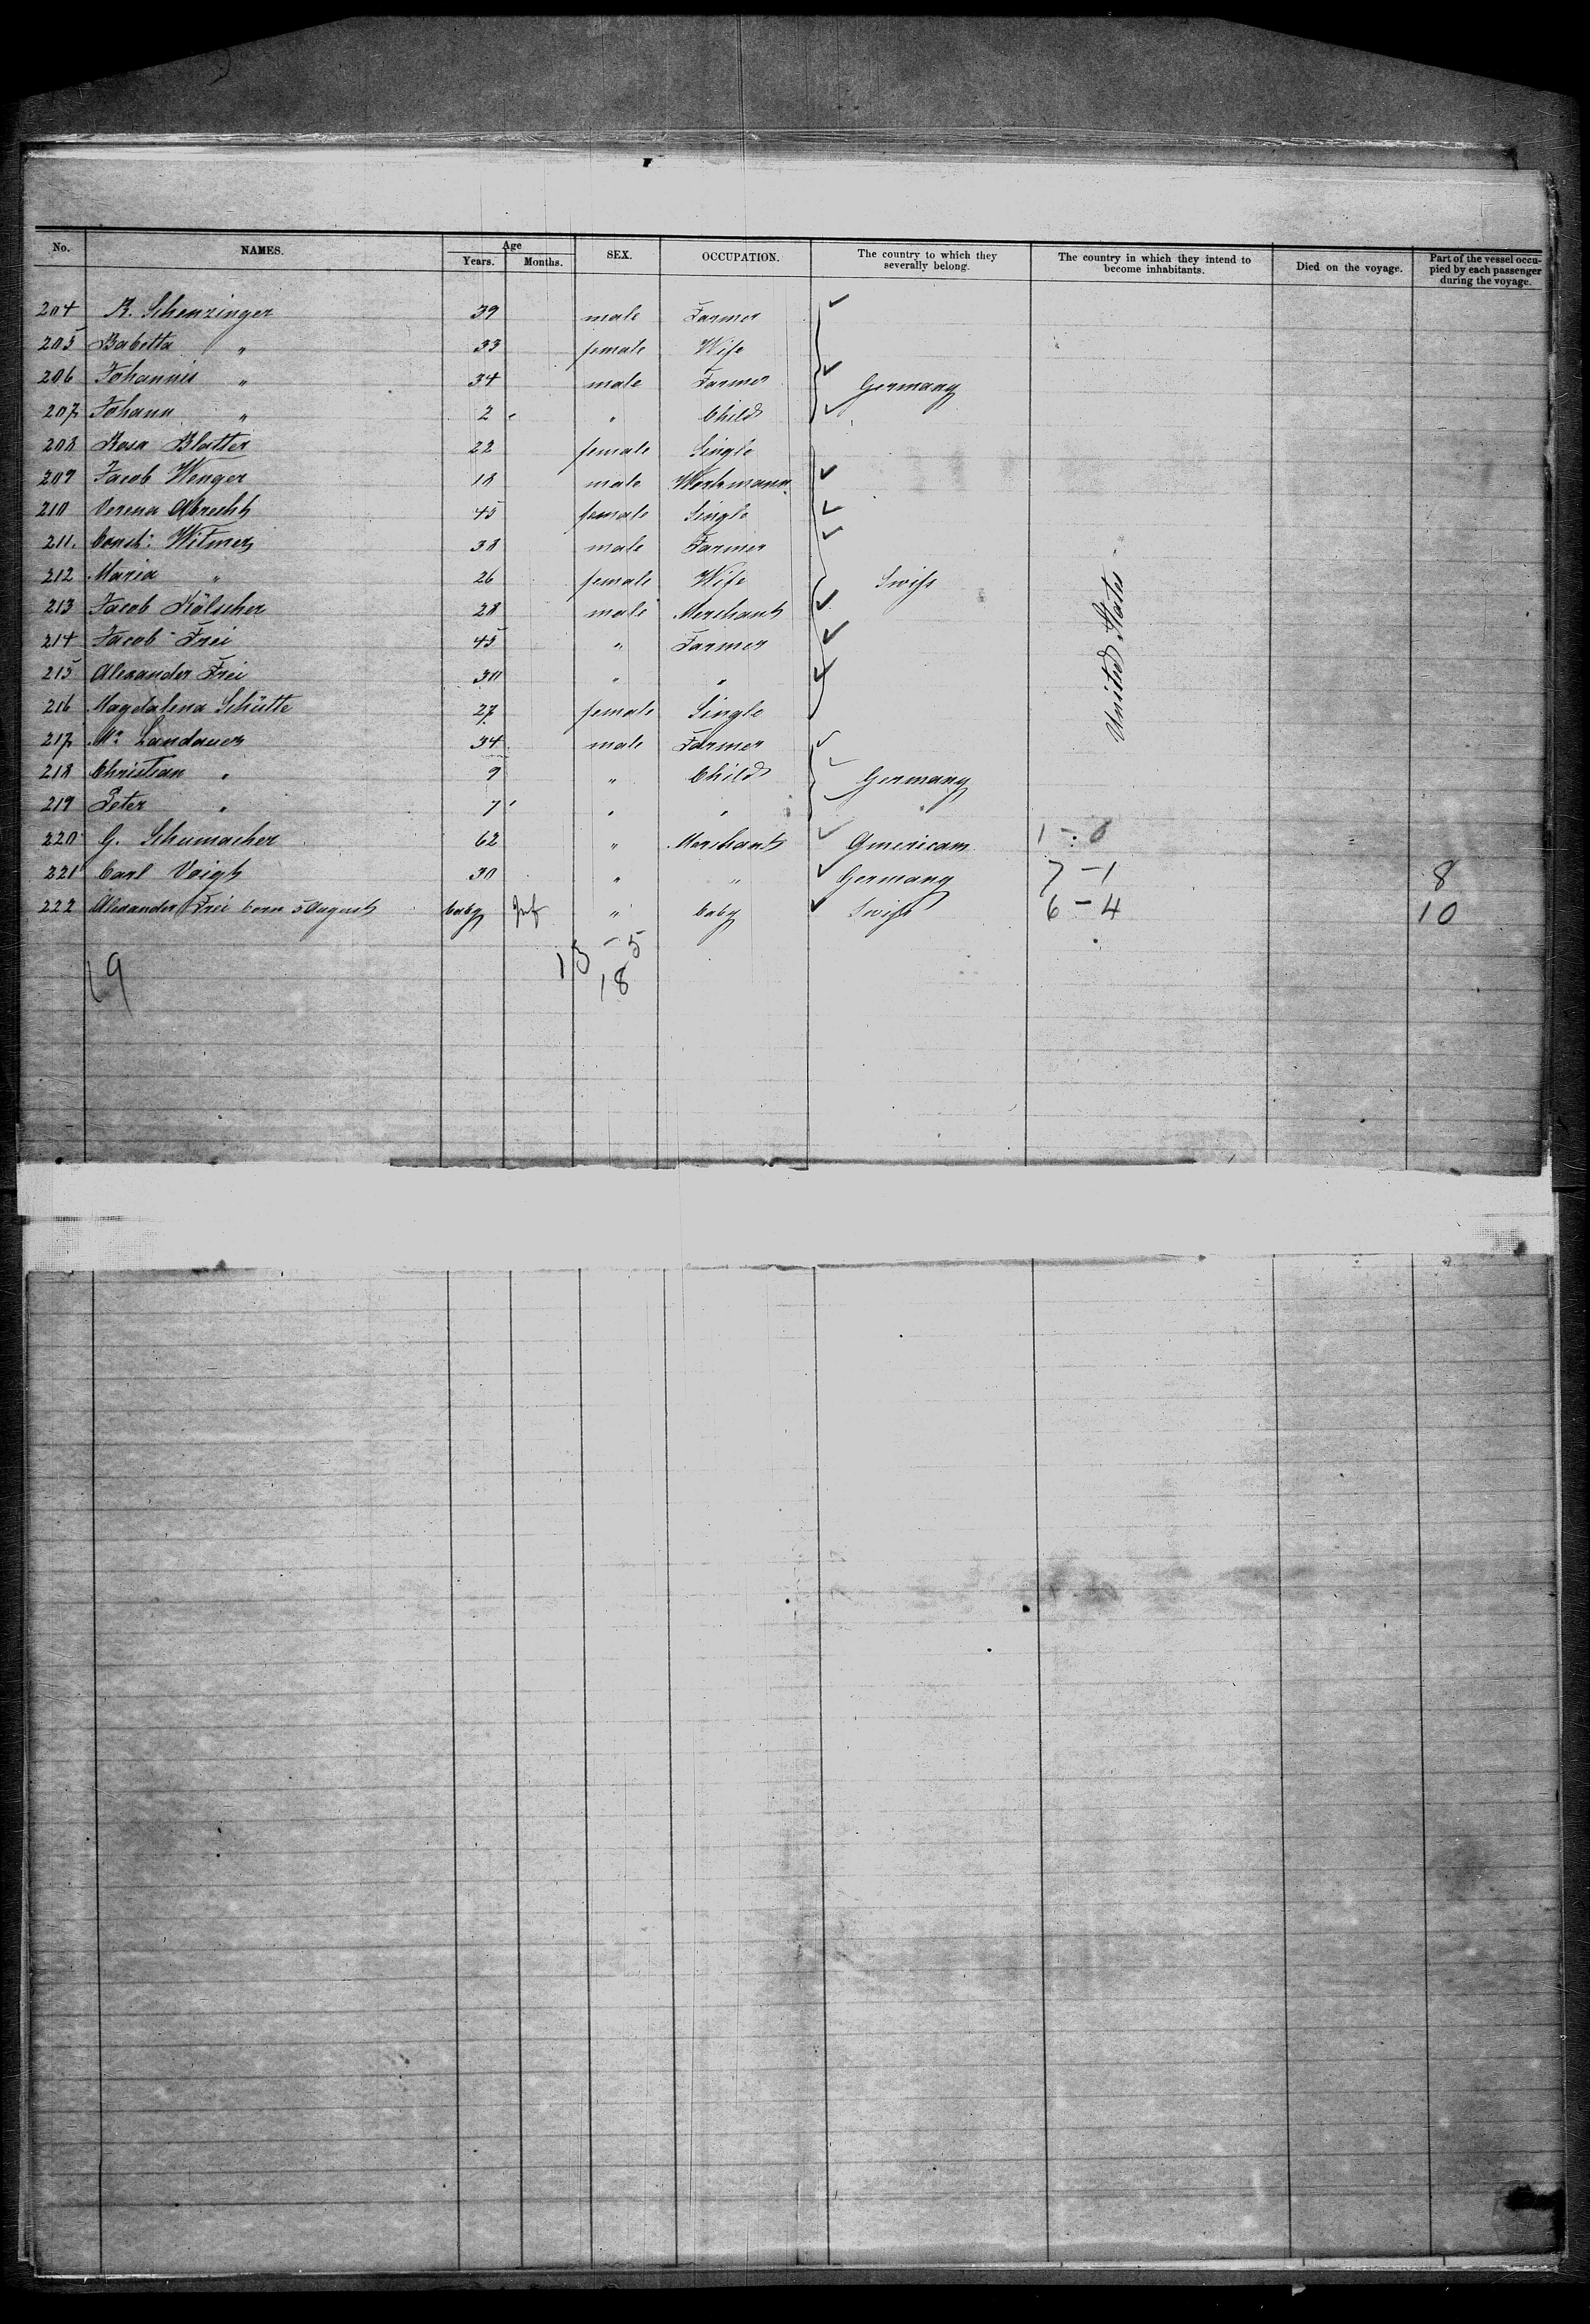 No. NAMES. Age Years. Months. SEX. OCCUPATION. The country to which they severally belong. The country in which they intend to become inhabitants. Died on the voyage. Part of the vessel occupied by each passenger during the voyage.
204 R. Schenzinger 39 male Farmer
205 Babetta " 33 female Wife
206 Johannis " 34 male Farmer Germany
207 Johann " 2 " Child
208 Rosa Blatter 22 female Single
209 Jacob Wenger 18 male Workmann
210 Verena Abrecht 45 female Single
211. Const: Witmer 38 male Farmer
212 Maria " 26 female Wife Swiss
213 Jacob Kölscher 28 male Merchant
214 Jacob Frei 45 " Farmer
215 Alexander Frei 30 " "
216 Magdalena Schütte 27 female Single
United States
217 Mr Landauer 34 male Farmer
218 Christian " 9 " Child Germany
219 Peter " 7 " " "
220 G. Schumacher 62 " Merchant American 1 - 0
221 Carl Voigt 30 " " Germany 7 - 1 8
222 Alexander Frei born 5 August baby Inf " baby Swiss 6 - 4 10
19 13 - 5
18